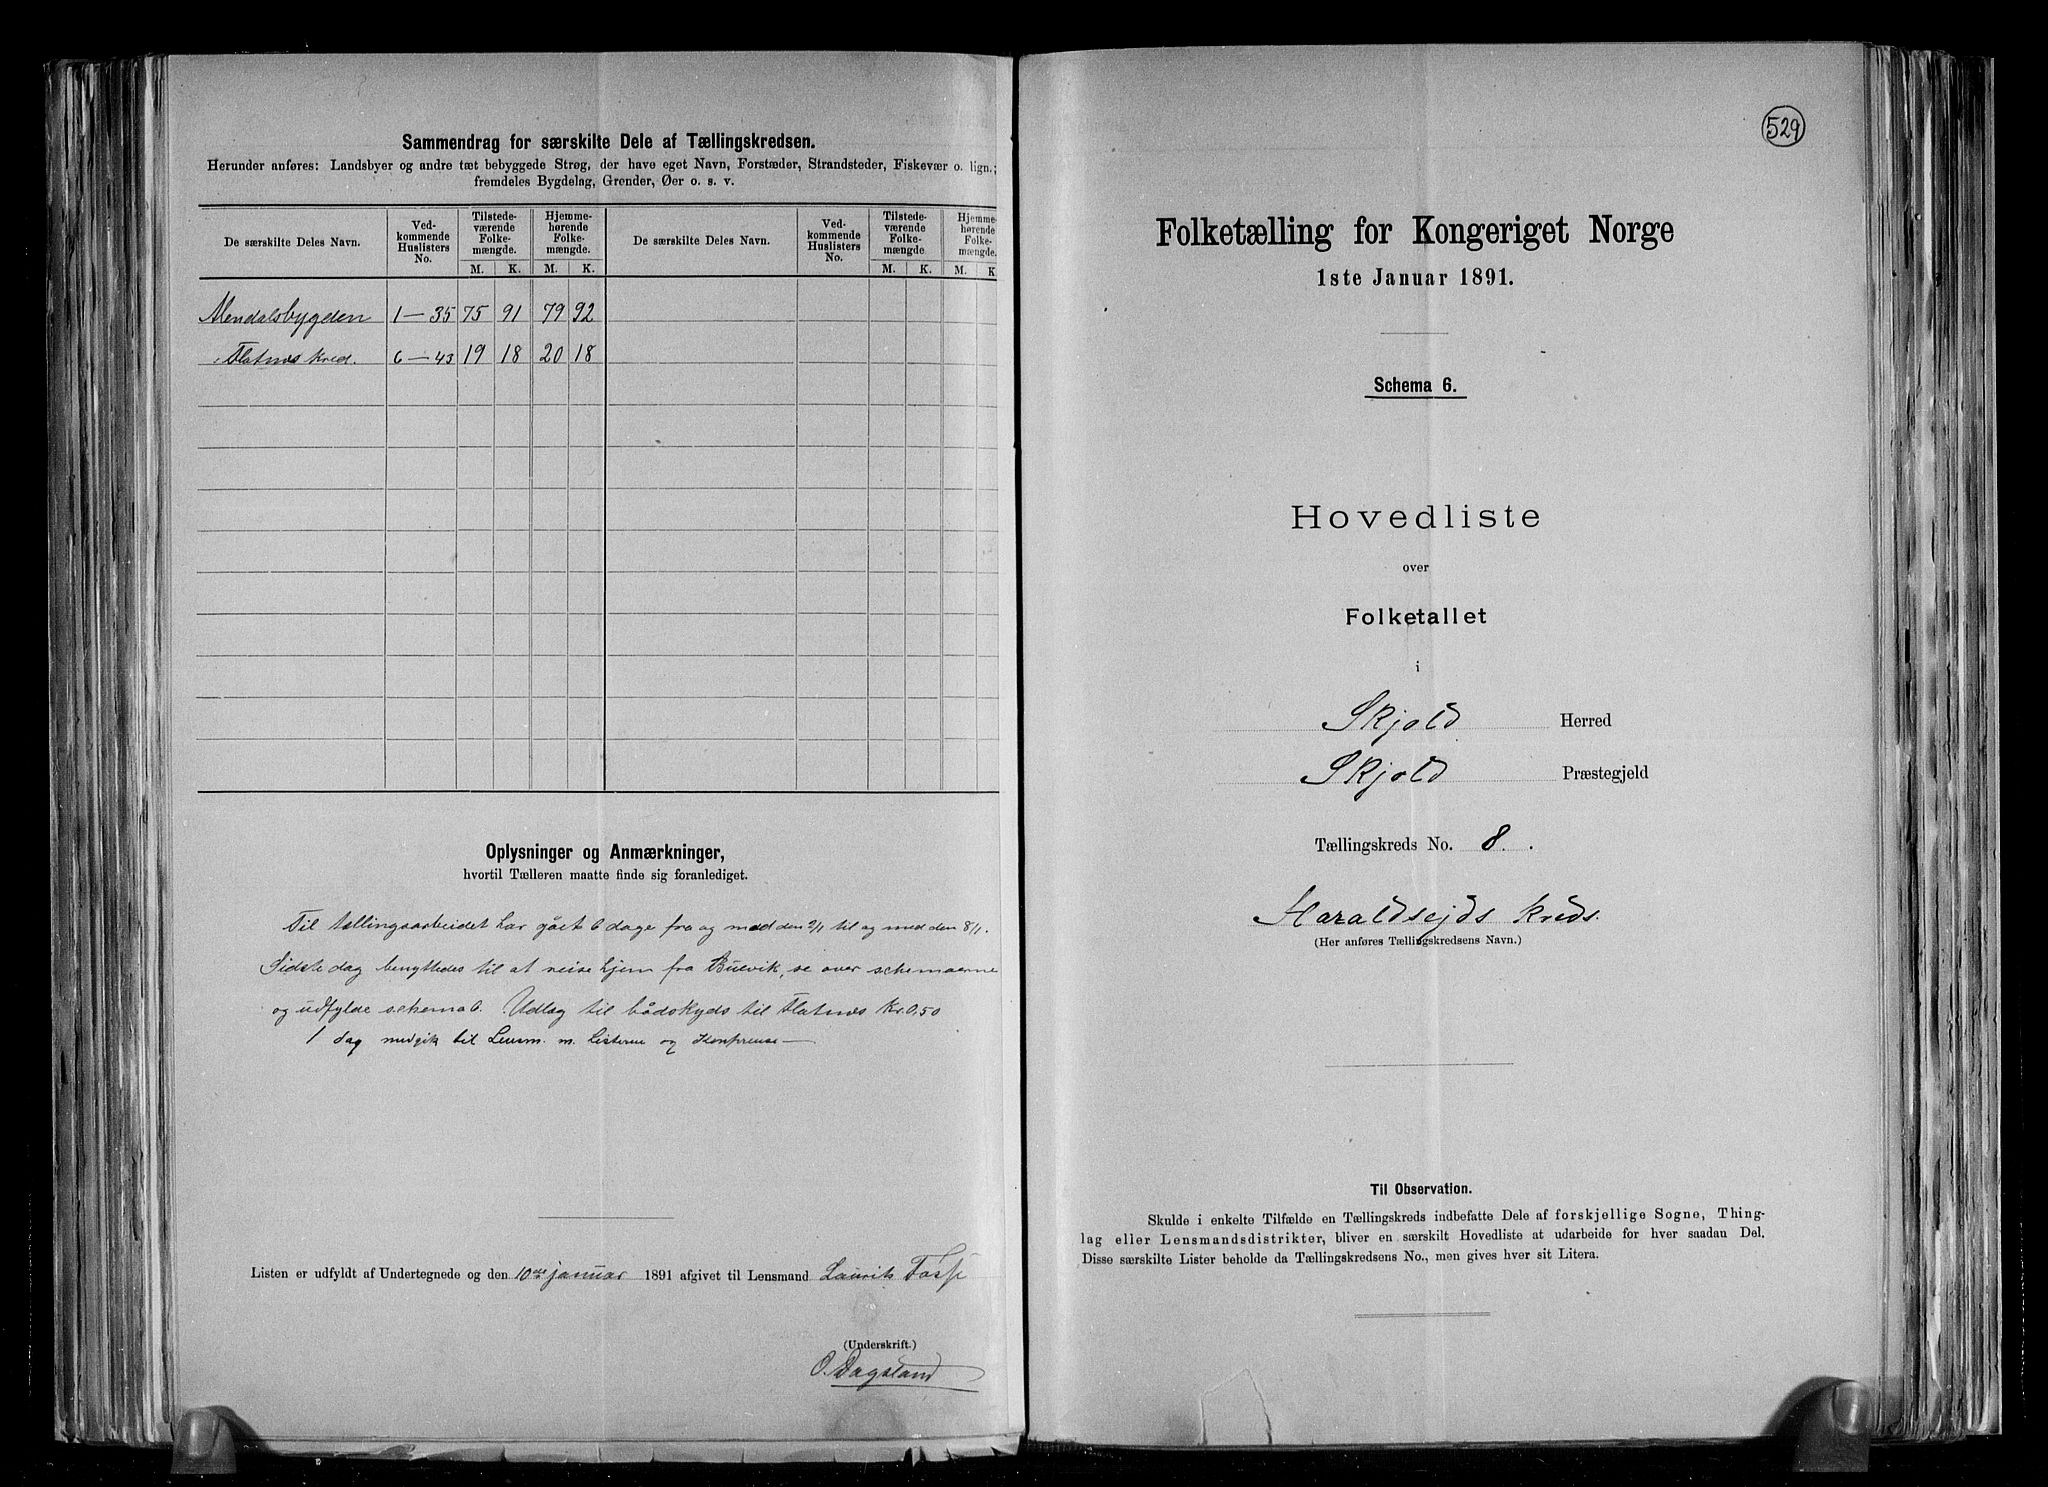 Sammendrag for særskilte Dele af Tællingskredsen.
Herunder anføres: Landsbyer og andre tæt bebyggede Strøg, der have eget Navn, Forstæder, Strandsteder, Fiskevær o. lign.;
fremdeles Bygdelag, Grender, Øer o. s. v.
De særskilte Deles Navn. Ved-kommende Huslisters No. Tilstede-værende Folke-mængde. Hjemme-hørende Folke-mængde. De særskilte Deles Navn. Ved-kommende Huslisters No. Tilstede-værende Folke-mængde Hjemme-hørende Folke-mængde.
M. K. M. K. M. K. M. K
Alendalsbygden 1 — 35 75 91 79 92
Flatnes kred. 6 — 43 19 18 20 18
Oplysninger og Anmærkninger,
hvortil Tælleren maatte finde sig foranlediget.
Til tællingsarbeidet har gået 6 dage fra og med den 2/1 til og med den 8/1.
Sidste dag benyttedes til at reise hjem fra Buevik, se over schemaerne
og udfylde schema 6. Udlæg til bådskyds til Flatnes Kr. 0,50
1 dag medgik til Lensm. m. Listerne og Konferense —
Listen er udfyldt af Undertegnede og den 10de januar 1891 afgivet til Lensmand Laurits Fosse
(Underskrift.)
O. Dagsland
529
Folketælling for Kongeriget Norge
1ste Januar 1891.
Schema 6.
Hovedliste
over
Folketallet
i
Skjold Herred
Skjold Præstegjeld
Tællingskreds No. 8.
Haraldsejds kreds.
(Her anføres Tællingskredsens Navn.)
Til Observation.
Skulde i enkelte Tilfælde en Tællingskreds indbefatte Dele af forskjellige Sogne, Thing-
lag eller Lensmandsdistrikter, bliver en særskilt Hovedliste at udarbeide for hver saadan Del.
Disse særskilte Lister beholde da Tællingskredsens No., men gives hver sit Litera.